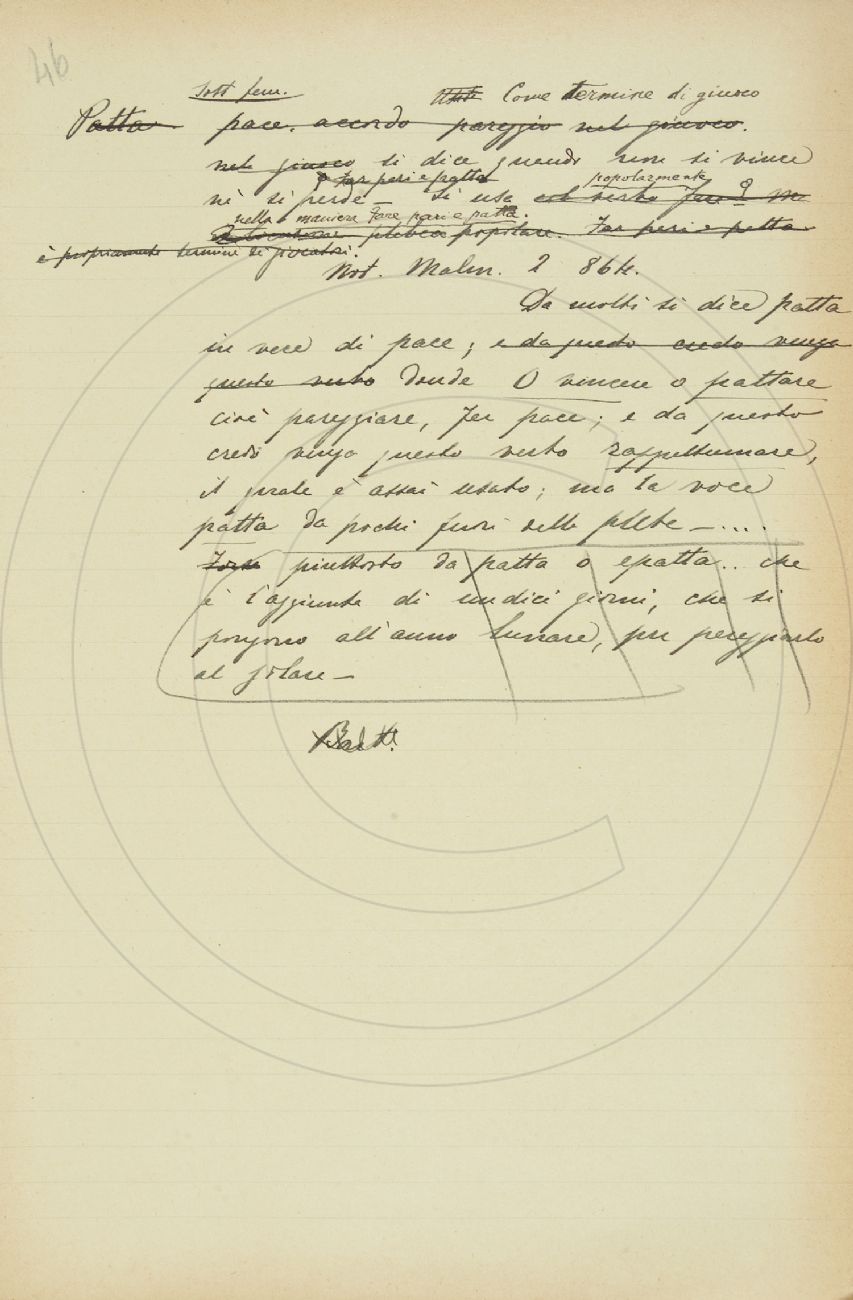 46
Sost fem. Come termine di giuoco
Patta pace. accordo pareggio nel giuoco.
nel giuoco si dice quando non si vince
o Far pari e patta popolarmente
nè si perde — Si usa col verbo Fare
nella maniera Fare pari e patta.
plebea popolare. Far pari e patta
è propriamente termine di giocatori.
Not. Malm. 2 864.
Da molti si dice patta
in vece di pace; e da questo credo venga
questo verbo donde O vincere o pattare
cioè pareggiare, Far pace; e da questo
credo venga questo verbo rappattumare,
il quale è assai usato; ma la voce
patta da pochi fuori della plebe — ....
Forse piuttosto da patta o epatta.. che
è l'aggiunta di undici giorni, che si
pongono all'anno lunare, per pareggiarlo
al solare —